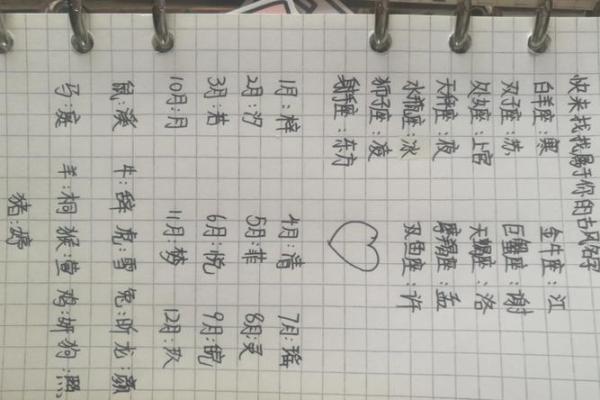 快来找找属于你的古风名字
白羊座:奥 金牛座:江
双子座:苏 巨蟹座:谢
处女座:上官 天蝎座:洛
天秤座:夜 摩羯座:孟
水瓶座:冰 双鱼座:许
狮子座:凌
射手座:东方
1月:梓 4月:清 7月:瑶
2月:汐 5月:菲 8月:灵
3月:若 6月:悦 9月:皖
10月:月 11月:梦 12月:玖
鼠:溪 牛:辞 虎:雪 兔:昕 龙:颜
马:庭 羊:桐 猴:萱 鸡:妍 狗:熙
猪:婷